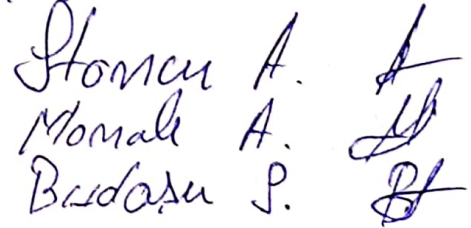 Stoncu A.
Monah A.
Budaşu S.